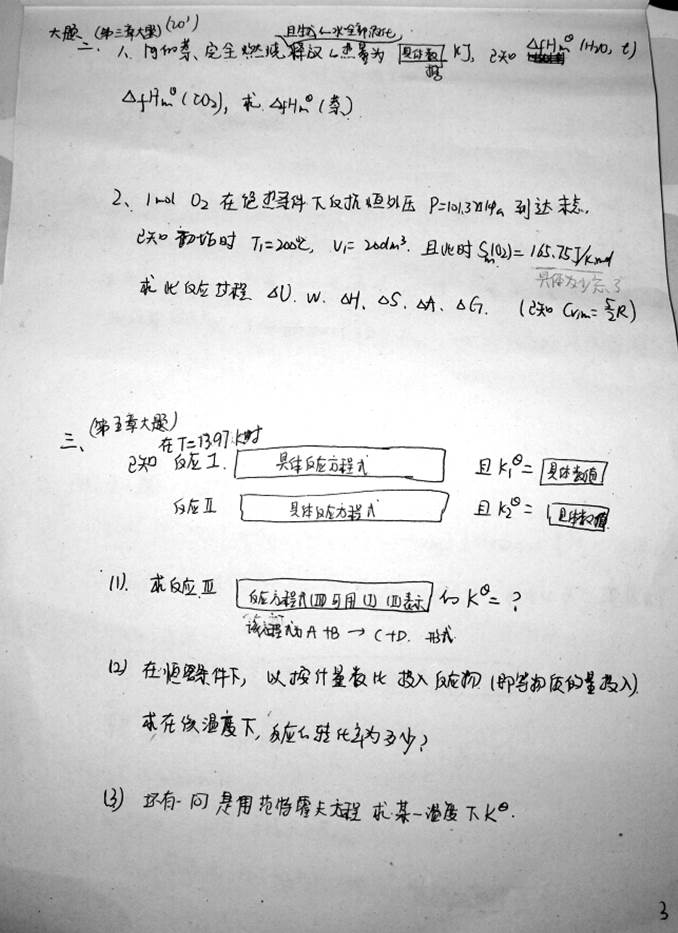 大题 (第三章大题) (20')
且生成水全部液化
二、1、1g的萘、完全燃烧释放的热量为 具体数据 KJ, 已知 ΔfHm^θ (H₂O, l)
ΔfHm^θ (CO₂), 求 ΔfHm^θ (萘)
2、1mol O₂ 在绝热条件下反抗恒外压 P=101.325kPa 到达末态,
已知 初始时 T₁=200℃, V₁= 20dm³. 且此时 Sm(O₂)= 165.75J/K·mol
具体为多少忘了
求 此反应过程 ΔU. W. ΔH. ΔS. ΔA. ΔG. (已知 Cv,m= 5/2R)
三、(第五章大题)
在T=1397K时
已知 反应Ⅰ. 具体反应方程式 且 K₁^θ = 具体数值
反应Ⅱ 具体反应方程式 且 K₂^θ = 具体数值
(1). 求反应Ⅲ 反应方程式(Ⅲ)可用(Ⅰ) (Ⅱ)表示 的 K^θ= ?
该方程式为 A+B → C+D. 形式
(2) 在恒容条件下, 以按计量数比 投入反应物 (即等物质的量投入)
求在该温度下, 反应的转化率为多少?
(3) 还有一问 是用范特霍夫方程 求某一温度下 K^θ.
3